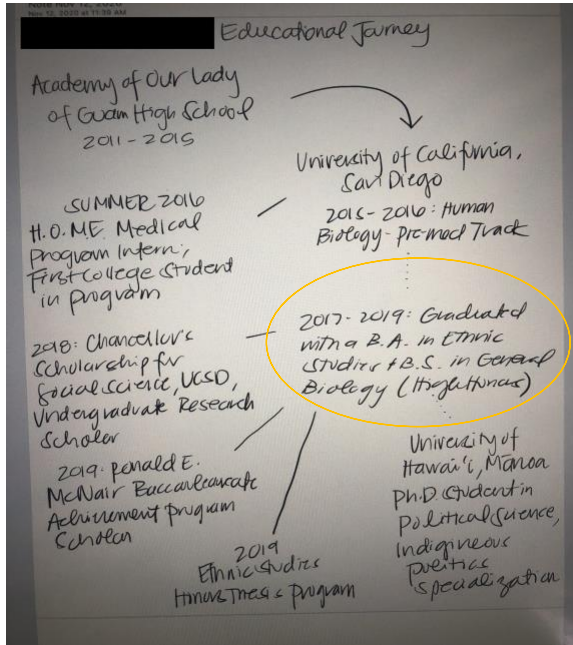 Note Nov 12, 2020
Nov 12, 2020 at 11:39 AM
Educational Journey
Academy of Our Lady
of Guam High School
2011-2015
University of California,
San Diego
2015-2016: Human
Biology-Pre-med Track
SUMMER 2016
H.O.M.E. Medical
Program Intern;
First College Student
in program
2017-2019: Graduated
with a B.A. in Ethnic
Studies + B.S. in General
Biology (High Honors)
2018: Chancellor's
Scholarship for
Social Science, UCSD,
Undergraduate Research
Scholar
2019: Ronald E.
McNair Baccalaureate
Achievement Program
Scholar
2019
Ethnic Studies
Honors Thesis Program
University of
Hawai'i, Mānoa
Ph.D. Student in
Political Science,
Indigineous
Politics
Specialization